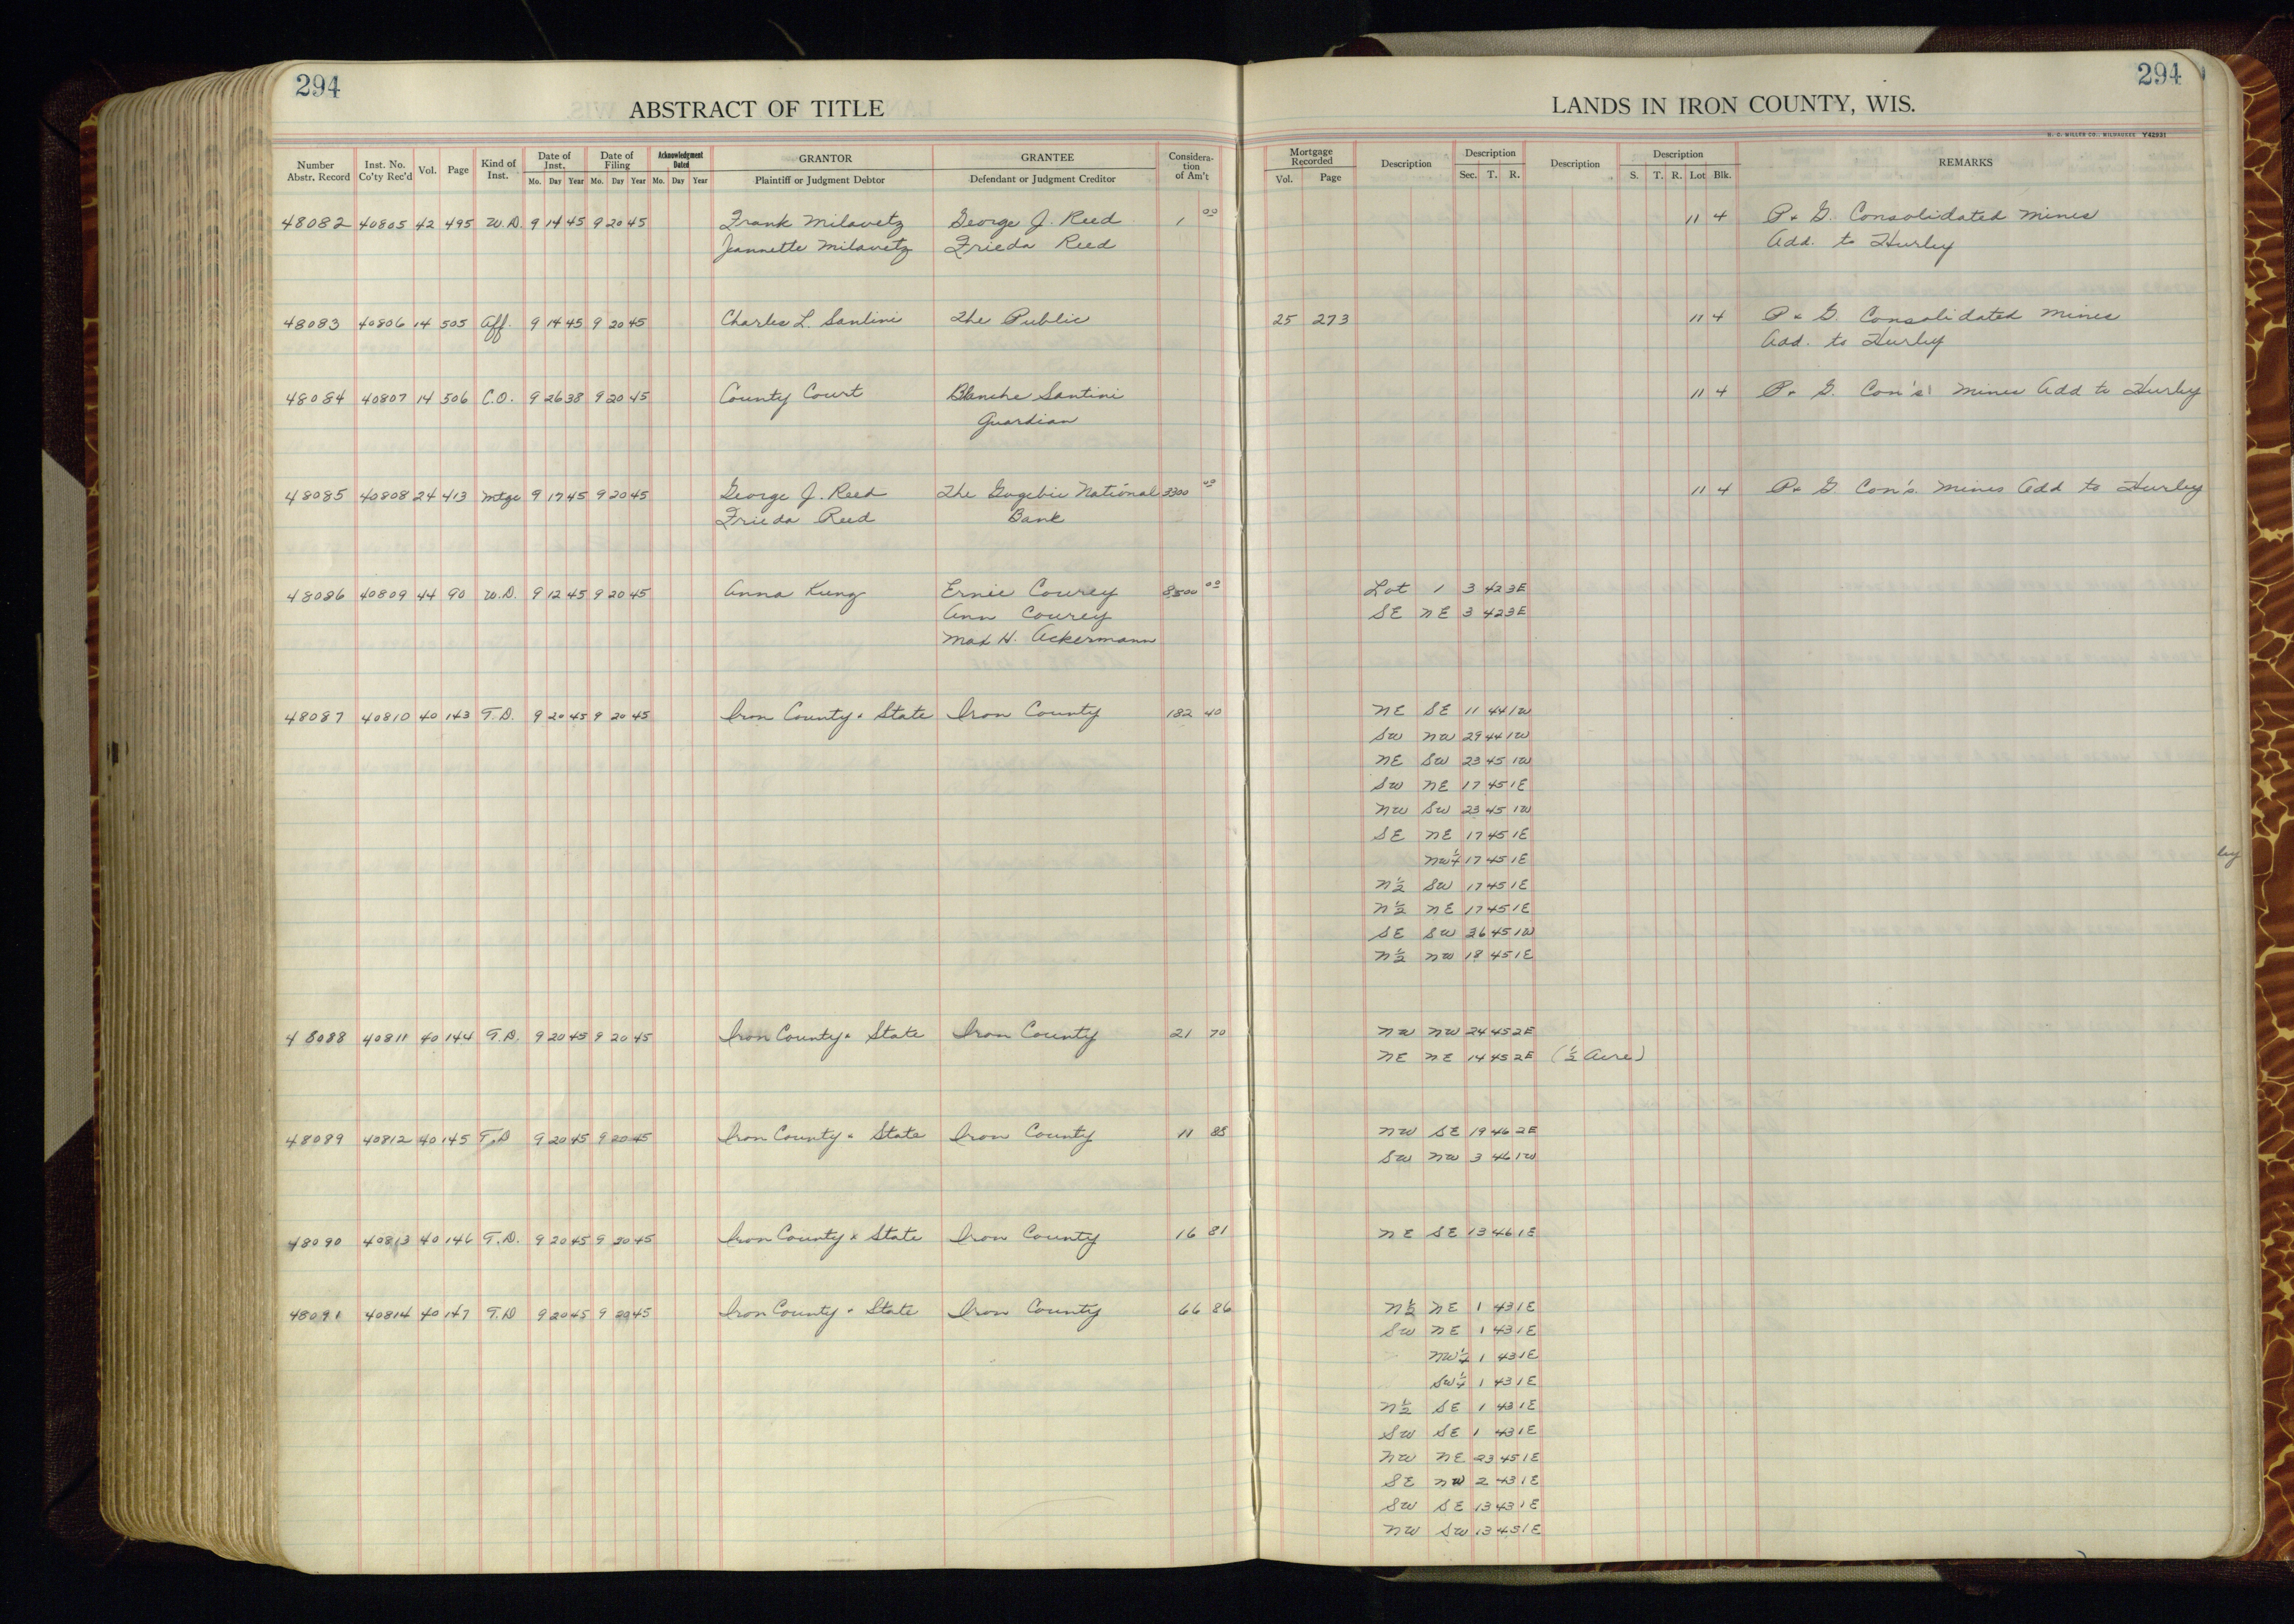 294
294
ABSTRACT OF TITLE
LANDS IN IRON COUNTY, WIS.
H. C. MILLER CO., MILWAUKEE Y42931
Number Abstr. Record Inst. No. Co'ty Rec'd Vol. Page Kind of Inst. Date of Inst. Mo. Day Year Date of Filing Mo. Day Year Acknowledgment Dated Mo. Day Year GRANTOR Plaintiff or Judgment Debtor GRANTEE Defendant or Judgment Creditor Considera-tion of Am't Mortgage Recorded Vol. Page Description Description Sec. T. R. Description Description S. T. R. Lot Blk. REMARKS
48082 40805 42 495 W.D. 9 14 45 9 20 45 Frank Milavetz George J. Reed 1 00 11 4 P. & G. Consolidated Mines
Jeannette Milavetz Frieda Reed Add. to Hurley
48083 40806 14 505 Aff. 9 14 45 9 20 45 Charles L. Santini The Public 25 273 11 4 P & G. Consolidated Mines
Add. to Hurley
48084 40807 14 506 C.O. 9 26 38 9 20 45 County Court Blanche Santini 11 4 P. & G. Con's Mines Add to Hurley
Guardian
48085 40808 24 413 Mtge 9 17 45 9 20 45 George J. Reed The Gogebic National 3300 00 11 4 P. & G. Con's. Mines Add to Hurley
Frieda Reed Bank
48086 40809 44 90 W.D. 9 12 45 9 20 45 Anna Kung Ernie Courey 8500 00 Lot 1 3 42 3E
Ann Courey SE NE 3 42 3E
Max H. Ackermann
48087 40810 40 143 T.D. 9 20 45 9 20 45 Iron County & State Iron County 182 40 NE SE 11 44 1W
SW NW 29 44 1W
NE SW 23 45 1W
SW NE 17 45 1E
NW SW 23 45 1W
SE NE 17 45 1E
NW¼ 17 45 1E
ley
N½ SW 17 45 1E
N½ NE 17 45 1E
SE SW 26 45 1W
N½ NW 18 45 1E
48088 40811 40 144 T.D. 9 20 45 9 20 45 Iron County & State Iron County 21 70 NW NW 24 45 2E
NE NE 14 45 2E (½ Acre)
48089 40812 40 145 T.D 9 20 45 9 20 45 Iron County & State Iron County 11 85 NW SE 19 46 2E
SW NW 3 46 1W
48090 40813 40 146 T.D. 9 20 45 9 20 45 Iron County & State Iron County 16 81 NE SE 13 46 1E
48091 40814 40 147 T.D 9 20 45 9 20 45 Iron County & State Iron County 66 86 N½ NE 1 43 1E
SW NE 1 43 1E
NW¼ 1 43 1E
SW¼ 1 43 1E
N½ SE 1 43 1E
SW SE 1 43 1E
NW NE 23 45 1E
SE NW 2 43 1E
SW SE 13 43 1E
NW SW 13 45 1E